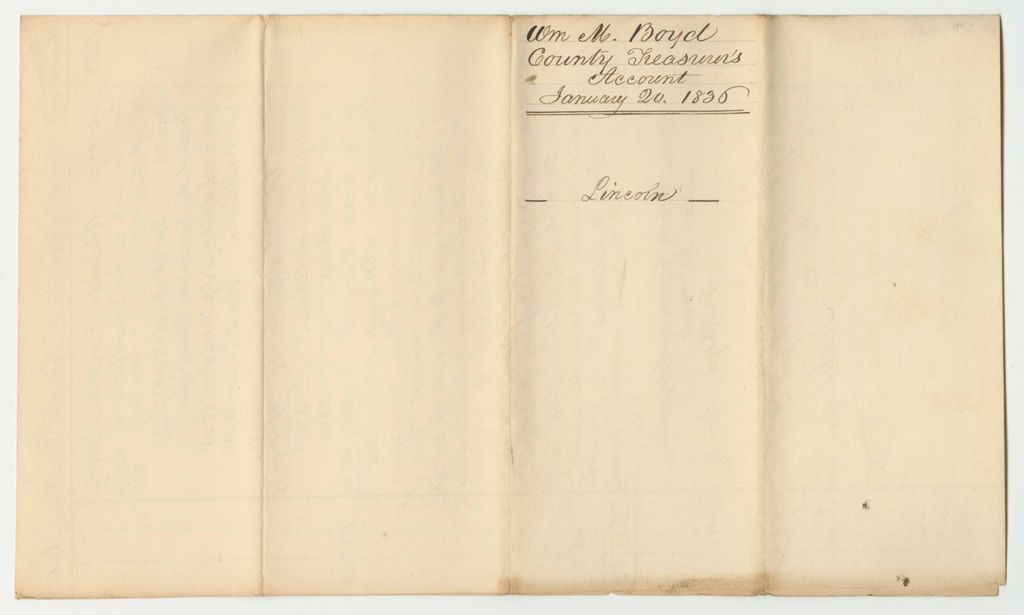 Wm M. Boyd
County Treasurer's
Account
January 20. 1836
— Lincoln —